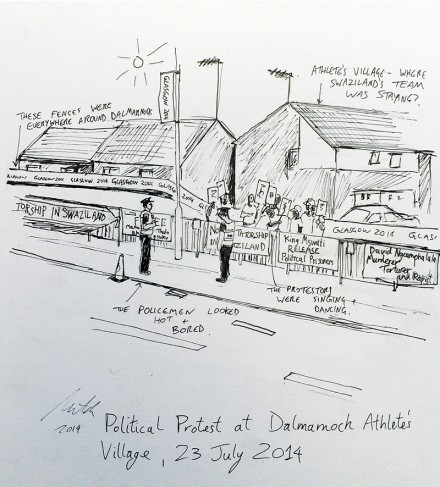 ATHLETE'S VILLAGE - WHERE
SWAZILAND'S TEAM
WAS STAYING?
GLASGOW 2014
THESE FENCES WERE
EVERYWHERE AROUND DALMARNOCK
GLASGOW 2014 GLASGOW 2014 GLASGOW 2014 GLASG
2014
GLASGOW 2014 GLAS
TORSHIP IN SWAZILAND
FREE
King Mswati
RELEASE
Political Prisoners
Murderer
Torturer
and Rapist
THE POLICEMEN LOOKED
HOT +
BORED.
THE PROTESTORS
WERE SINGING +
DANCING.
2014
Political Protest at Dalmarnoch Athlete's
Village, 23 July 2014